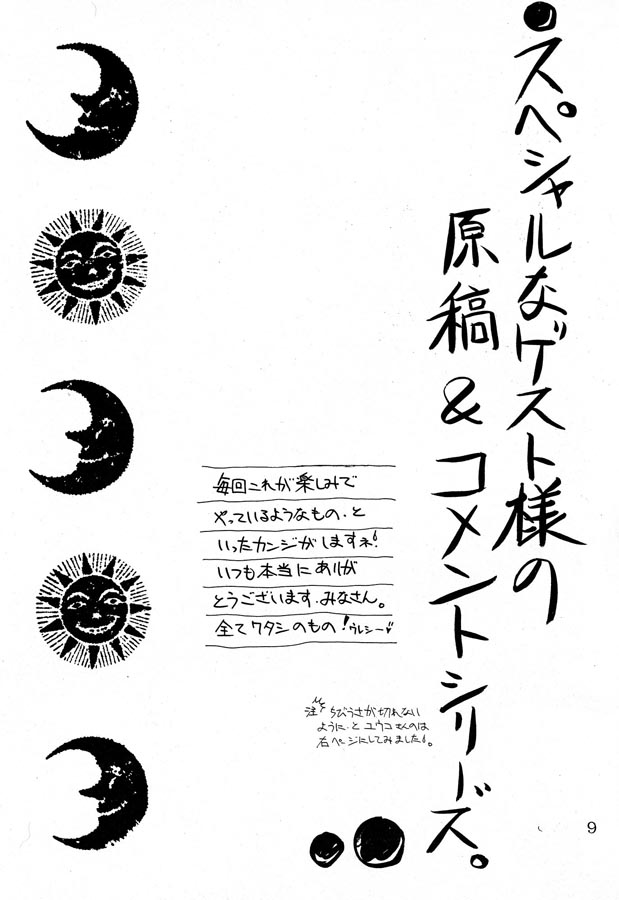 スペシャルなゲスト様の
原稿&コメントシリーズ。
毎回これが楽しみで
やっているようなもの、と
いったカンジがしますネ!
いつも本当にありが
とうございます、みなさん。
全てワタシのもの!ウレシー♥
注 ちびうさが切れない
ように、と ユウコさんのは
右ページにしてみました。
9